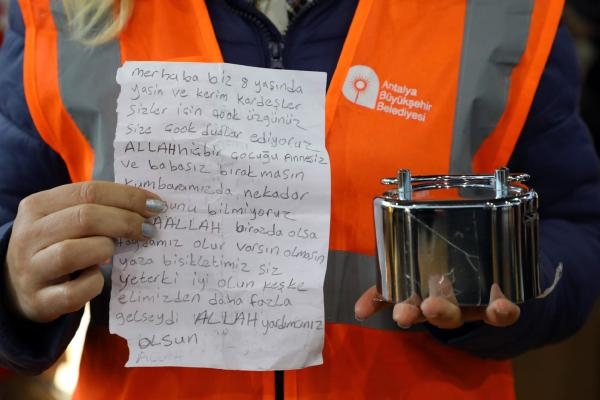 merhaba biz 8 yaşında
yasin ve kerim kardeşler
sizler için çook üzgünüz
size çook dualar ediyoruz
ALLAH hiçbir çocuğu Annesiz
ve babasız bırakmasın
kumbaramızda nekadar
bilmiyoruz
AALLAH birazda olsa
faydamız olur varsın olmasın
yaza bisikletimiz siz
yeterki iyi olun keşke
elimizden daha fazla
gelseydi ALLAH yardımınız
OLSUN
Antalya
Büyükşehir
Belediyesi